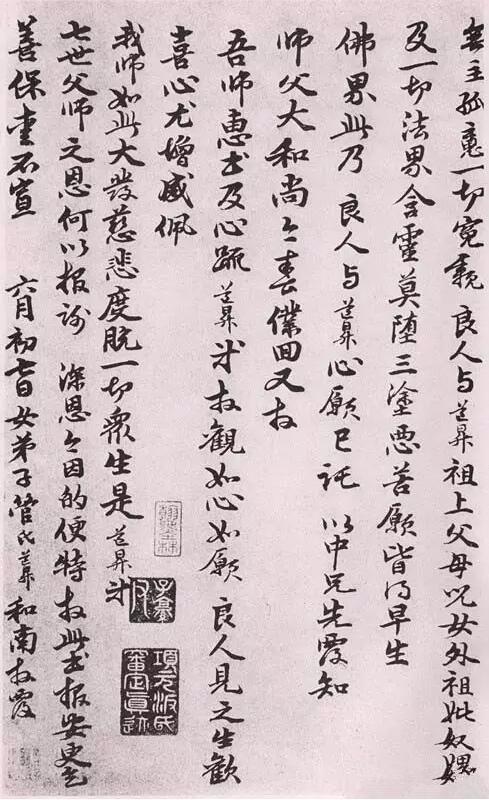 無主孤魂一切寃親 良人与道昇祖上父母児女外祖妣奴婢
及一切法界含靈莫堕三塗惡苦願皆得早生
佛界此乃 良人与道昇心願已託 以中兄先覆知
師父大和尚今春僕回又拜
吾師惠書及心疏道昇等拜觀如心如願 良人見之生歡
喜心尤增感佩
我師如此大發慈悲度脱一切衆生是道昇等
七世父師之恩何以報謝 深恩今因的便特拜此書報安更乞
善保重不宣 六月初七日女弟子管氏道昇和南拜覆
項元汴氏審定真迹